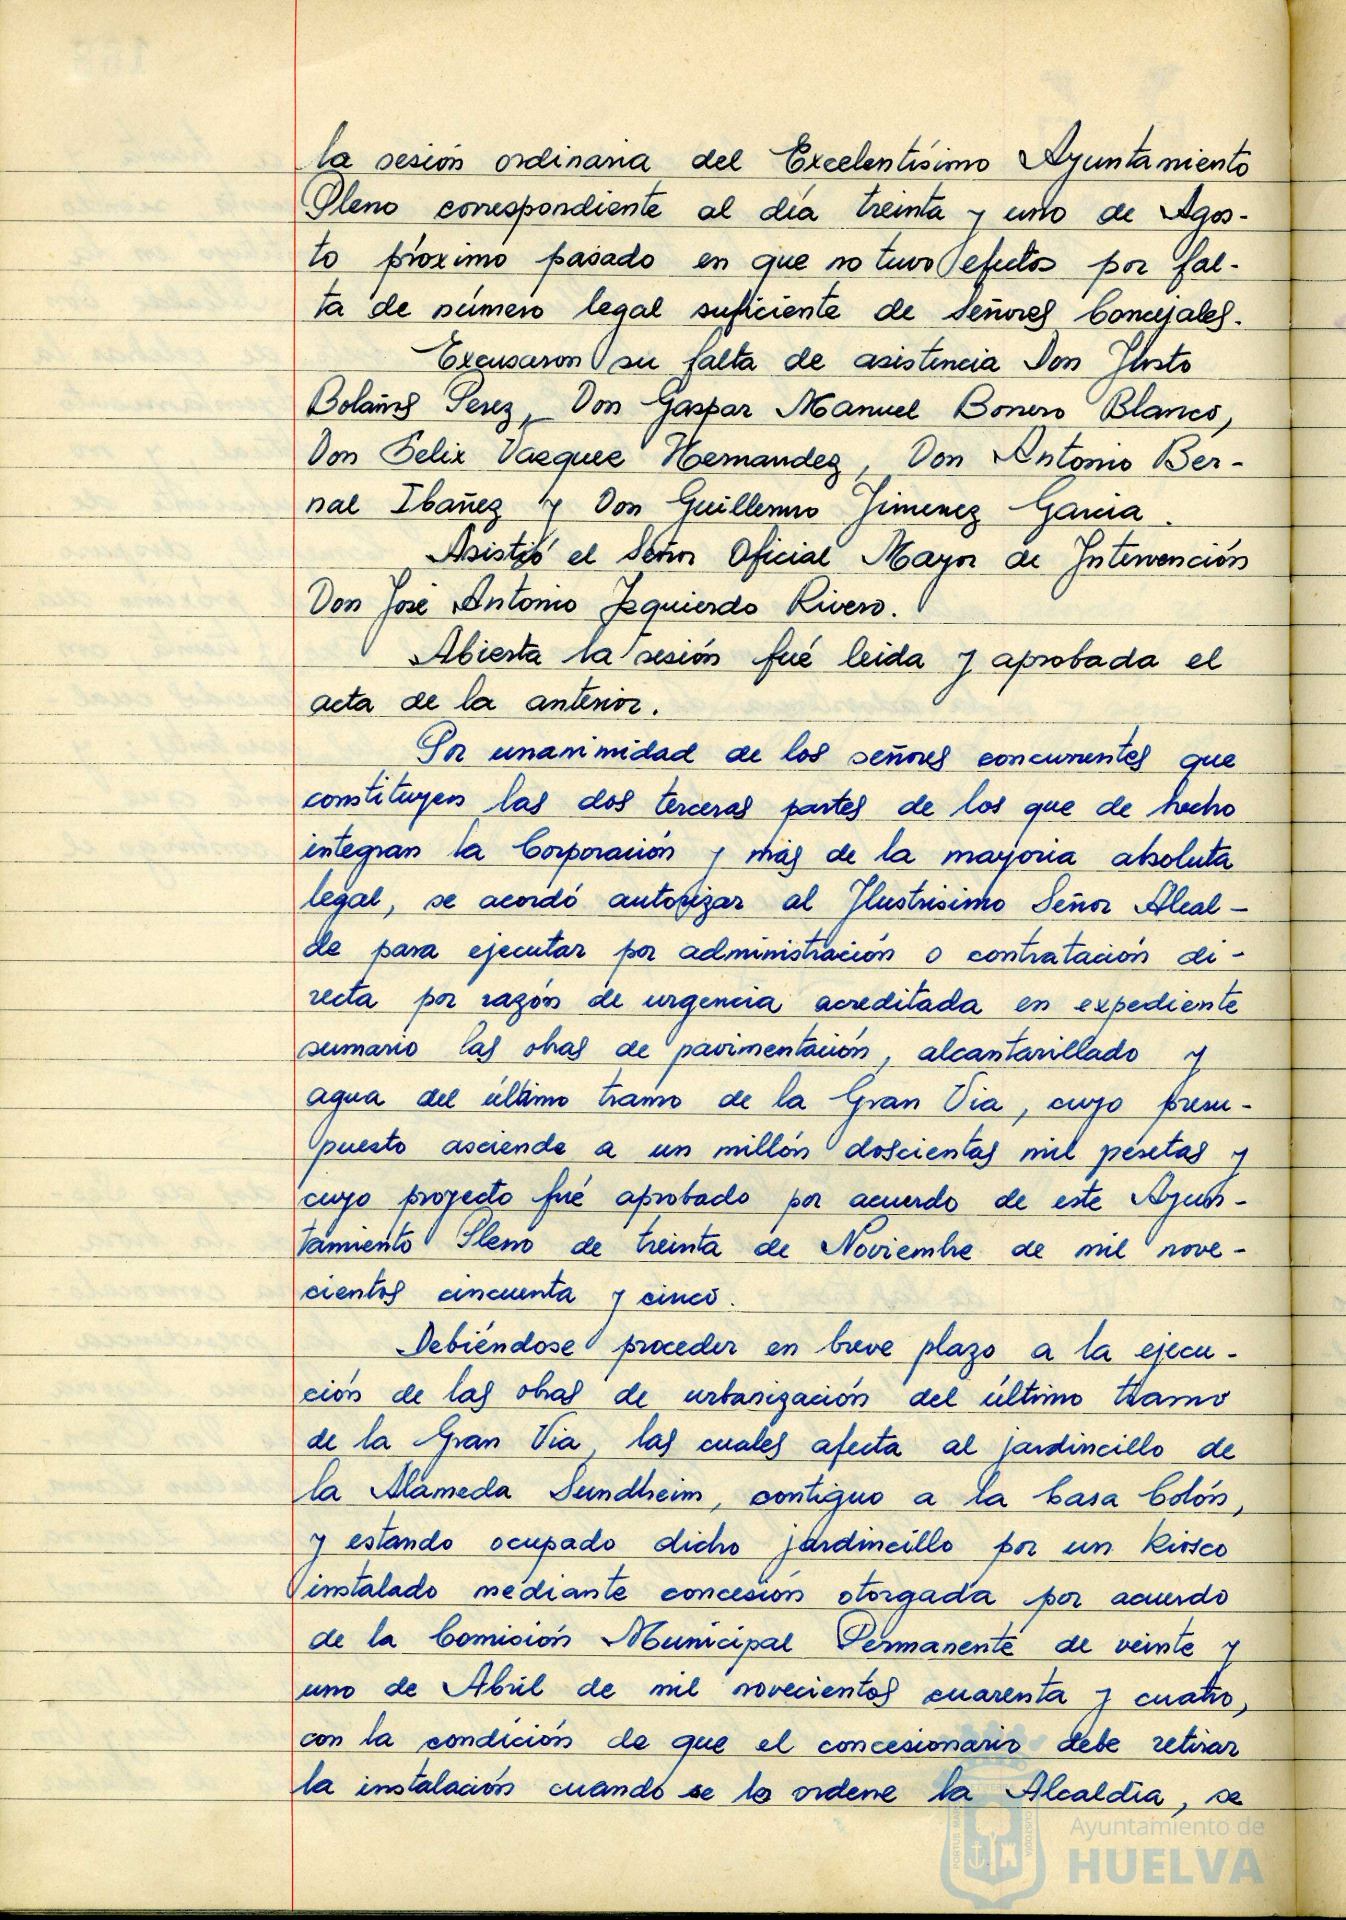 la sesión ordinaria del Excelentísimo Ayuntamiento
Pleno correspondiente al día treinta y uno de Agos-
to próximo pasado en que no tuvo efectos por fal-
ta de número legal suficiente de Señores Concejales.
Excusaron su falta de asistencia Don Justo
Bolaños Perez, Don Gaspar Manuel Borrero Blanco,
Don Felix Vazquez Hernandez, Don Antonio Ber-
nal Ibañez y Don Guillermo Jimenez Garcia.
Asistió el Señor Oficial Mayor de Intervención
Don José Antonio Izquierdo Rivero.
Abierta la sesión fué leida y aprobada el
acta de la anterior.
Por unanimidad de los señores concurrentes que
constituyen las dos terceras partes de los que de hecho
integran la Corporación y más de la mayoria absoluta
legal, se acordó autorizar al Ilustrisimo Señor Alcal-
de para ejecutar por administración o contratación di-
recta por razón de urgencia acreditada en expediente
sumario las obras de pavimentación, alcantarillado y
agua del último tramo de la Gran Via, cuyo presu-
puesto asciende a un millón doscientas mil pesetas y
cuyo proyecto fué aprobado por acuerdo de este Ayun-
tamiento Pleno de treinta de Noviembre de mil nove-
cientos cincuenta y cinco.
Debiéndose proceder en breve plazo a la ejecu-
ción de las obras de urbanización del último tramo
de la Gran Via, las cuales afecta al jardincillo de
la Alameda Sundheim, contiguo a la Casa Colón,
y estando ocupado dicho jardincillo por un kiosco
instalado mediante concesión otorgada por acuerdo
de la Comisión Municipal Permanente de veinte y
uno de Abril de mil novecientos cuarenta y cuatro,
con la condición de que el concesionario debe retirar
la instalación cuando se lo ordene la Alcaldia, se
Ayuntamiento de
HUELVA